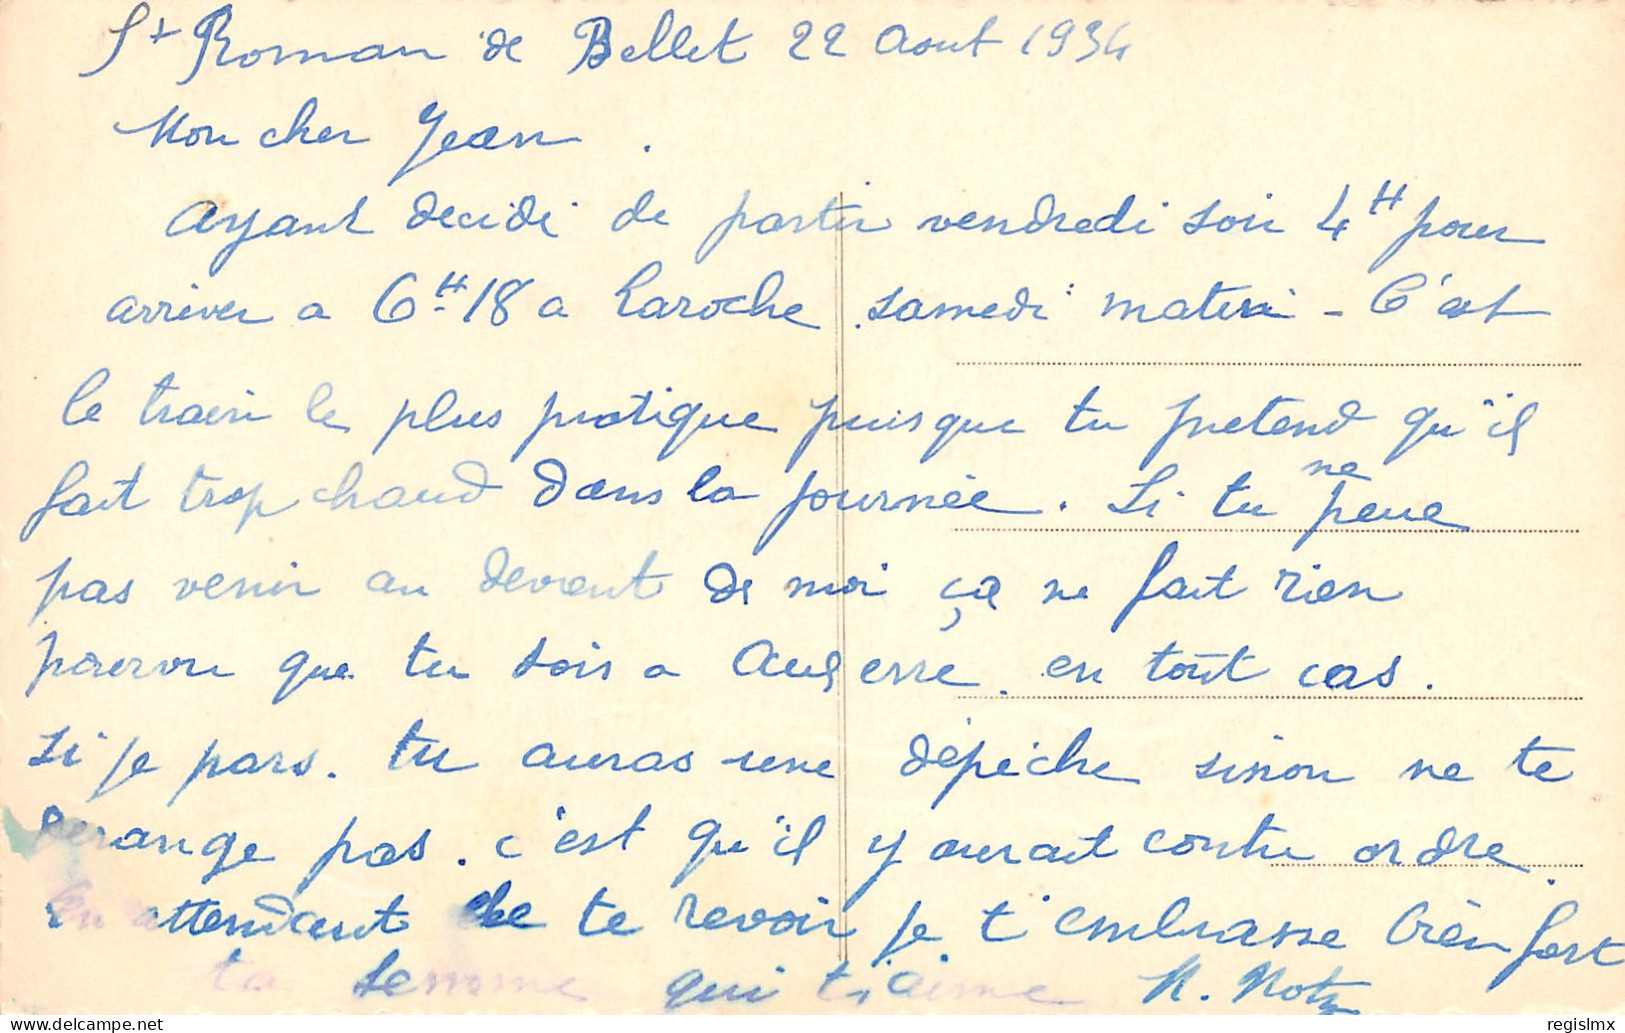 St Roman de Bellet 22 Aout 1934
Mon cher Jean.
Ayant décidé de partir vendredi soir 4H pour
arriver a 6H18 a Laroche samedi matin - C'est
le train le plus pratique puisque tu pretend qu'il
fait trop chaud dans la journée. Si tu ne peue
pas venir au devant de moi ça ne fait rien
pourvu que tu sois a Auxerre en tout cas.
Si je pars. tu auras une dépêche sinon ne te
derange pas. c'est qu'il y aurait contre ordre.
En attendant de te revoir je t'embrasse bien fort
ta femme qui t'aime M.
regislmx